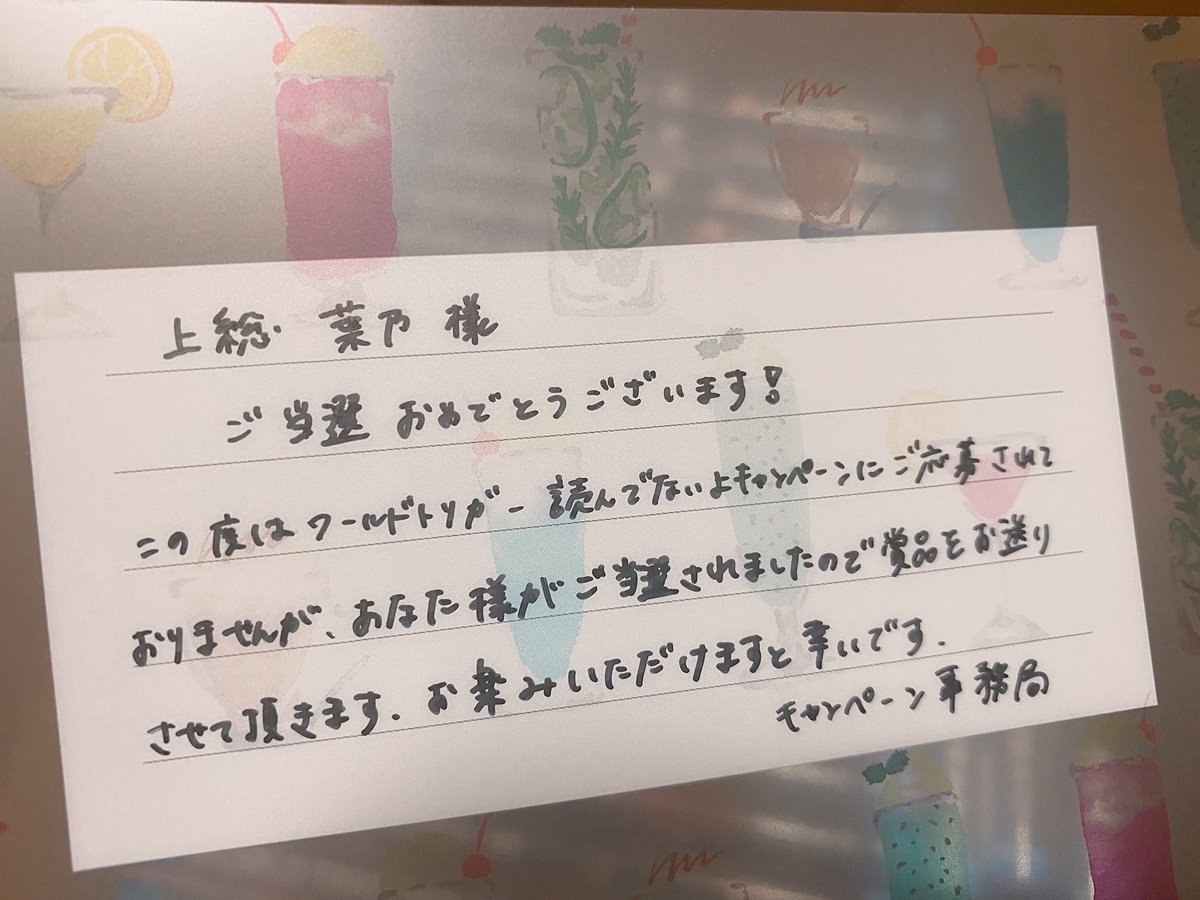 上総 葉乃 様
ご当選 おめでとうございます!
この度は ワールドトリガー 読んでないよキャンペーンにご応募されて
おりませんが、あなた様がご当選されましたので賞品をお送り
させて頂きます。お楽みいただけますと幸いです.
キャンペーン事務局